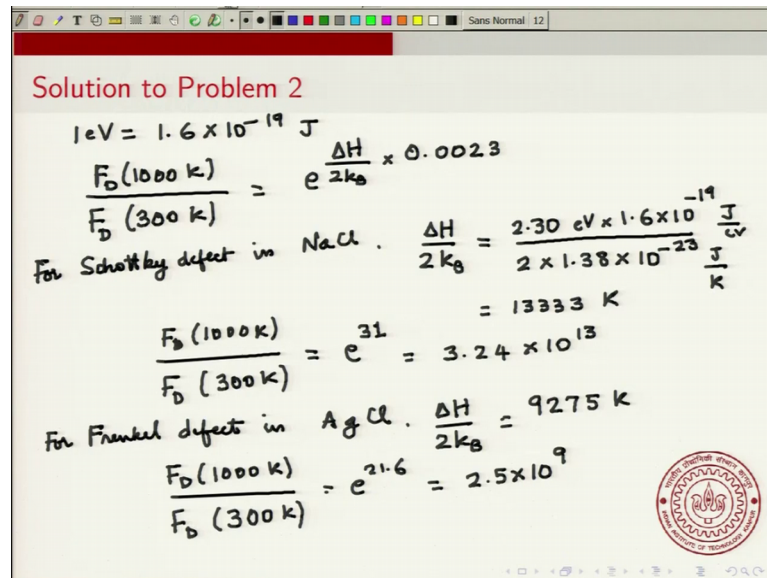 Sans Normal 12
Solution to Problem 2
1eV = 1.6 × 10⁻¹⁹ J
F_D (1000 K) / F_D (300 K) = e^(ΔH/2k_B × 0.0023)
For Schottky defect in NaCl. ΔH/2k_B = (2.30 eV × 1.6×10⁻¹⁹ J/eV) / (2 × 1.38 × 10⁻²³ J/K)
= 13333 K
F_D (1000K) / F_D (300K) = e³¹ = 3.24 × 10¹³
For Frenkel defects in AgCl. ΔH/2k_B = 9275 K
F_D (1000 K) / F_D (300 K) = e^21.6 = 2.5×10⁹
INDIAN INSTITUTE OF TECHNOLOGY KANPUR